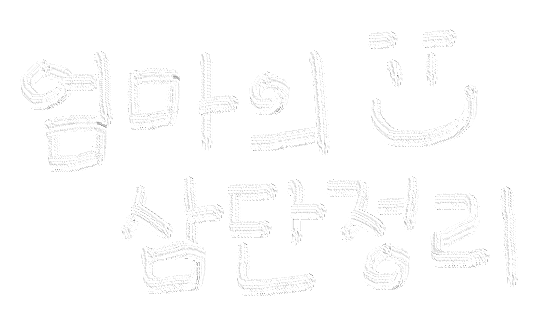 엄마의
삼단정리